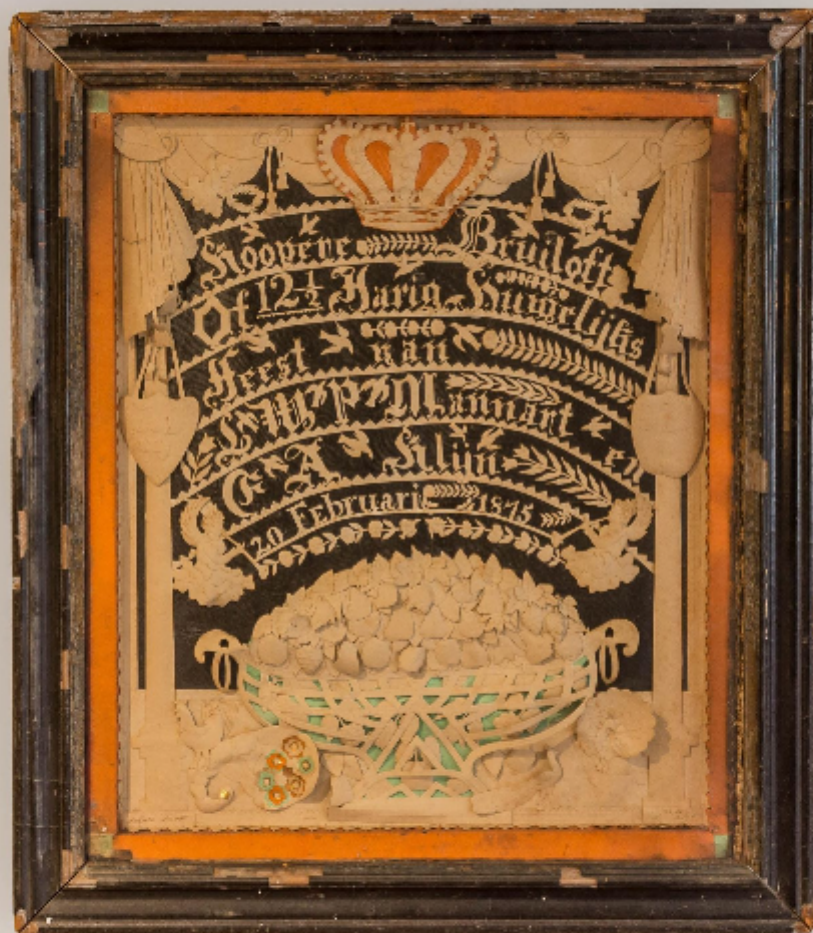 Koopere Bruiloft
Of 12½ Jarig Huwelijks
Feest van
L. W. P. Mannart en
G. A. Klijn
20 Februari 1875